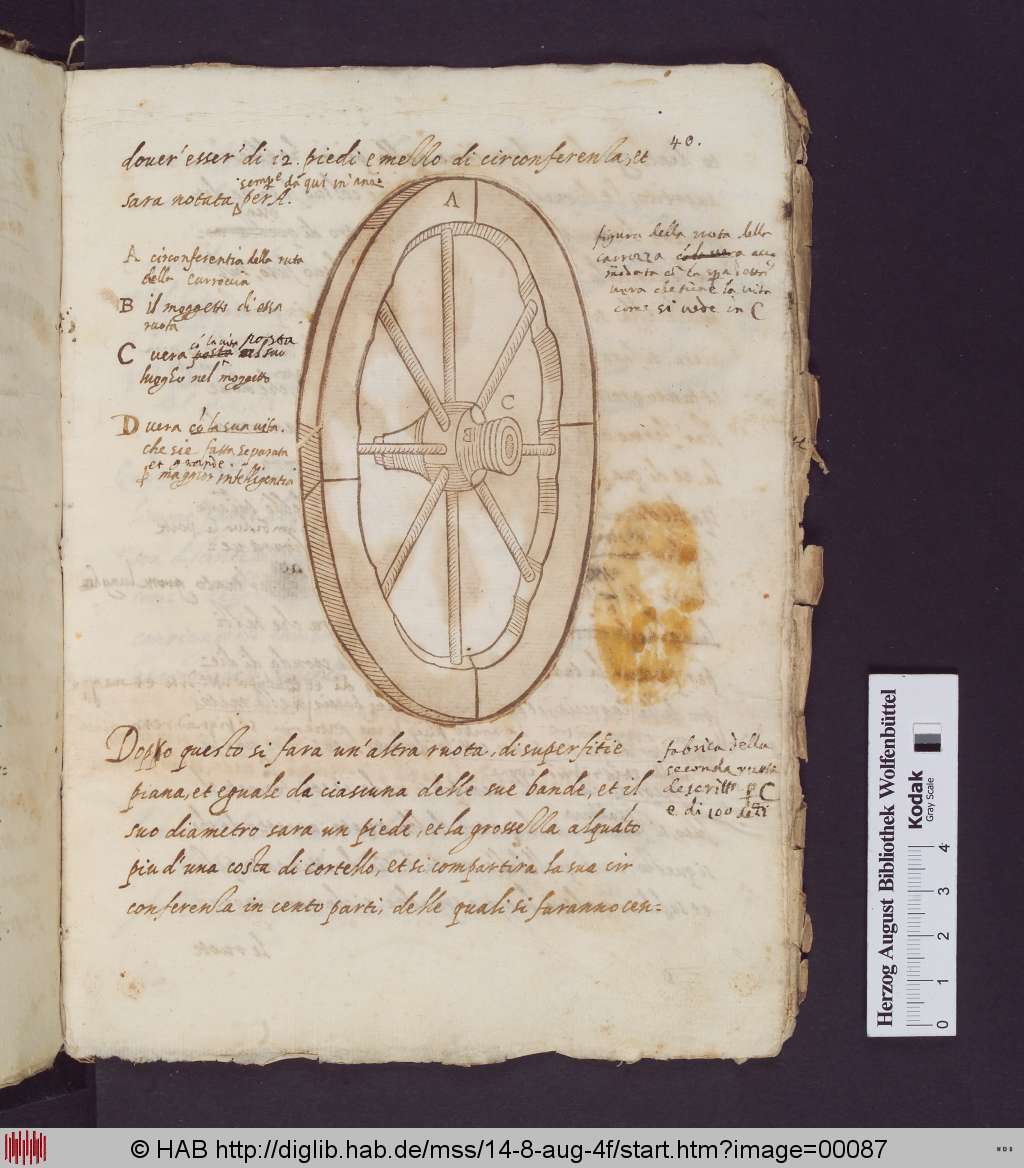 40.
douer' esser' di 12. piedi e mezzo di circonferenza, et
semp.e da qui in'anzi
sara notata per A.
A circonferentia della ruta
della carroccia
B il mozzetto di essa
ruota
C vera posta
cō la vita posta
suo
luogho nel mozzetto
D vera cō la sua vita.
che si è fatta separata
et grande
p maggior intelligentia
figura della ruota della
carrozza
vera che tiene la vita
come si vede in C
A
C
B
Doppo questo si fara un'altra ruota, di superfitie
piana, et eguale da ciascuna delle sue bande, et il
suo diametro sara un piede, et la grossezza alquāto
piu d'una costa di cortello, et si compartira la sua cir
conferenza in cento parti, delle quali si faranno cen=
fabrica della
seconda ruota
C
e di 100 dēti
Herzog August Bibliothek Wolfenbüttel
Kodak
Gray Scale
0 1 2 3 4
© HAB http://diglib.hab.de/mss/14-8-aug-4f/start.htm?image=00087